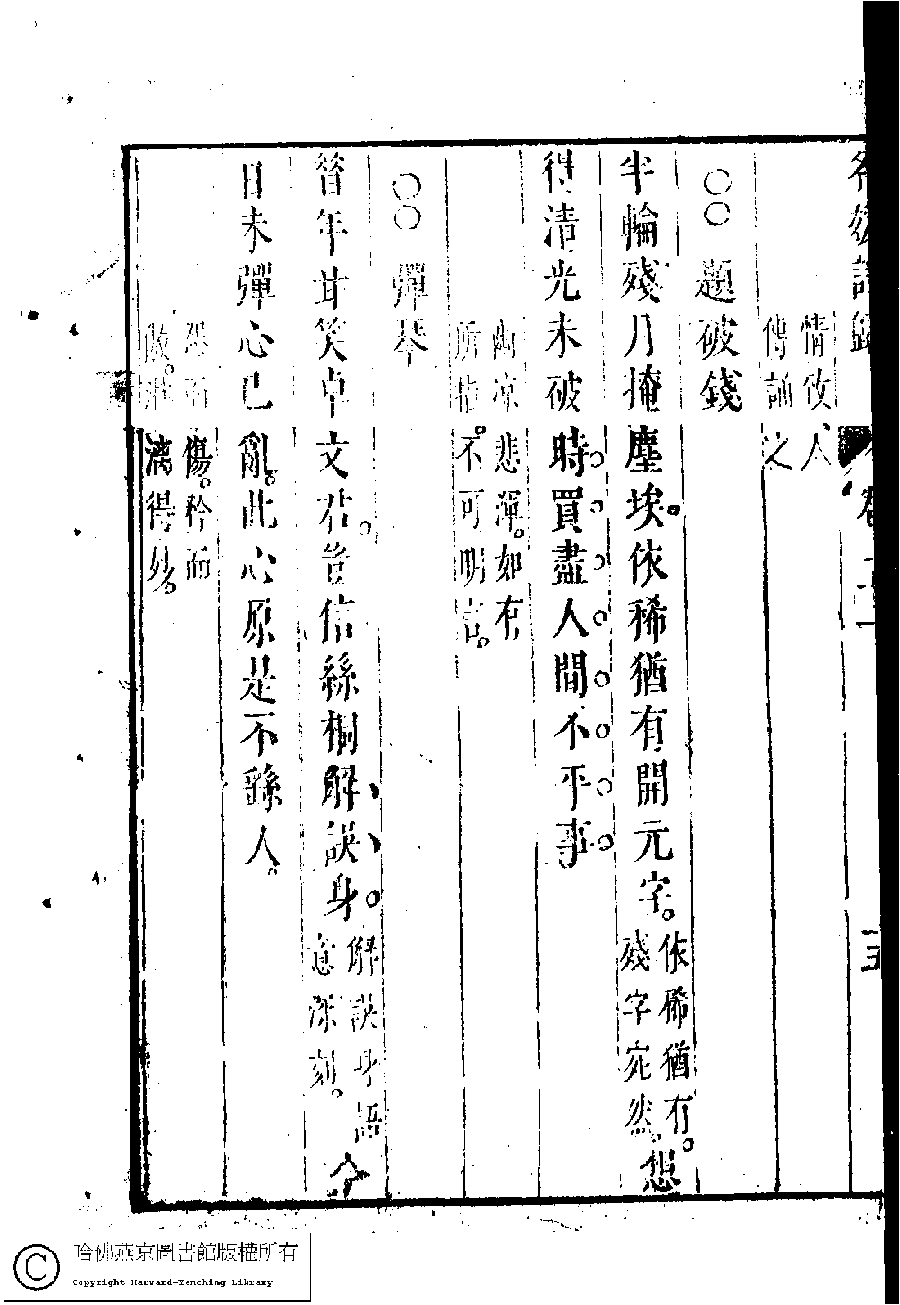 名媛詩歸 卷二十一 五
情改人
傳誦之
○○題破錢
半輪殘月掩塵埃。依稀猶有開元字。依稀猶有。殘字宛然。想
得清光未破時。買盡人間不平事
幽凉悲渾。如有
所指。不可明言。
○○彈琴
昔年甘笑卓文君。豈信絲桐解誤身。解誤身語意深刻。今
日未彈心已亂。此心原是不繇人。
怨而傷。矜而
傲。淋漓得妙。
哈佛燕京圖書館版權所有
Copyright Harvard-Yenching Library